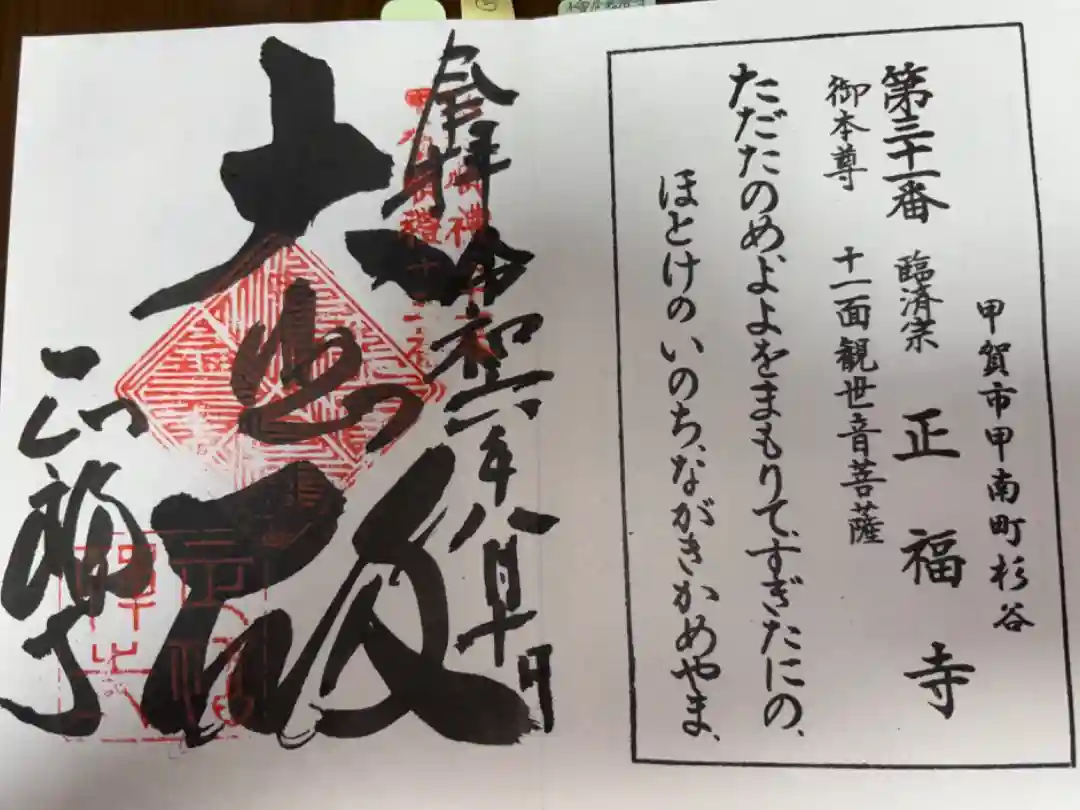 甲賀市甲南町杉谷
第三十一番 臨済宗 正福寺
御本尊 十一面観世音菩薩
ただたのめ、よよをまもりて、すぎたにの、
ほとけの いのち、ながきかめやま、
奉拝 令和六年八月十日
大悲殿
正福寺